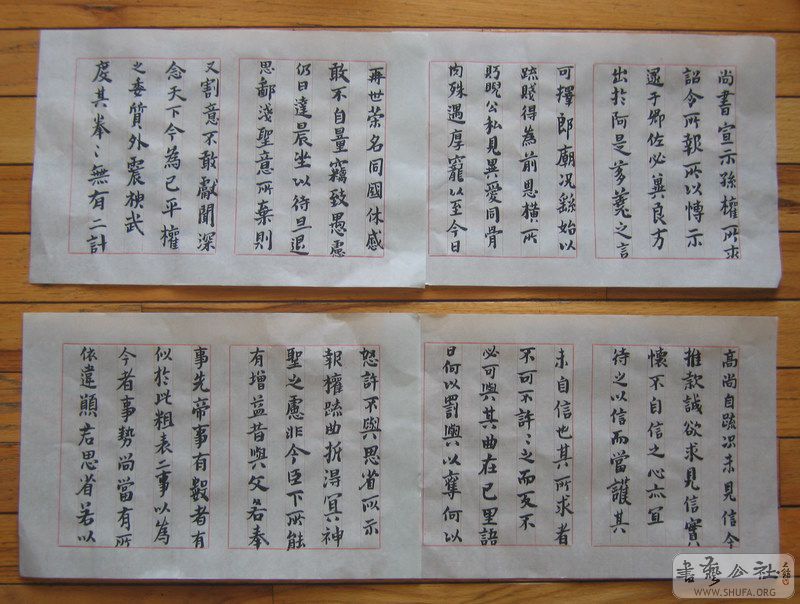 尚書宣示孫權所求
詔令所報所以博示
逮于卿佐必冀良方
出於阿是芻蕘之言
可擇郎廟況繇始以
疏賤得為前恩橫所
眄睨公私見異愛同骨
肉殊遇厚寵以至今日
再世榮名同國休感
敢不自量竊致愚慮
仍日達晨坐以待旦退
思鄙淺聖意所棄則
又割意不敢獻聞深
念天下今為已平權
之委質外震神武
度其拳〻無有二計
高尚自疏況未見信今
推款誠欲求見信實
懷不自信之心亦宜
待之以信而當護其
未自信也其所求者
不可不許〻之而反不
必可與其曲在已里語
曰何以罰與以奪何以
怒許不與思省所示
報權疏曲折得宜神
聖之慮非今臣下所能
有增益昔與文若奉
事先帝事有數者有
似於此粗表二事以為
今者事勢尚當有所
依違願君思省若以
書藝公社
WWW.SHUFA.ORG